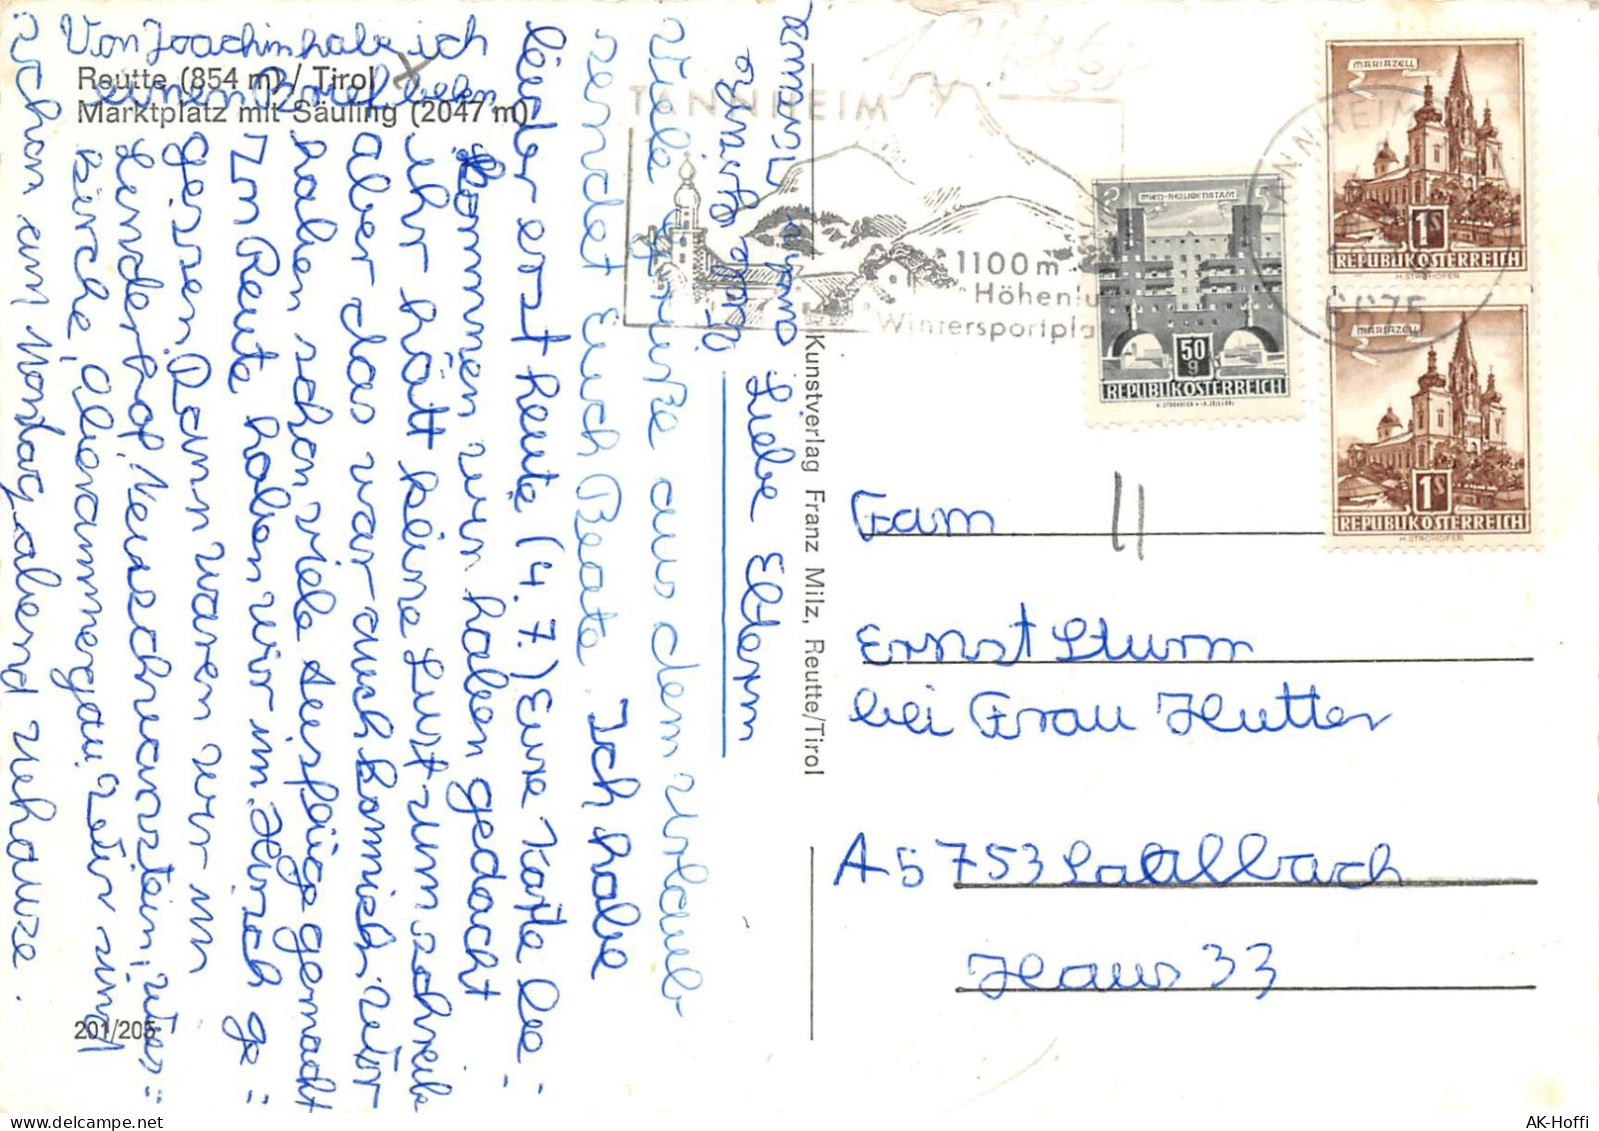 Reutte (854 m) / Tirol
Marktplatz mit Säuling (2047 m)
Liebe Eltern
Viele Grüße aus dem Urlaub
sendet Euch Beate. Ich habe
leider erst heute (4.7.) Eure Karte be=
kommen wir haben gedacht
ihr hätt keine Lust zum schreiben
aber das war auch komisch. Wir
haben schon viele Ausflüge gemacht
In Reute haben wir im Hirsch ge=
gessen Dann waren wir in
Linderhof, Neuschwanstein, Wies=
kirche, Oberammergau. Wir sind
schon am Montag abend zuhause.
Von Joachim habe ich
einen Brief
201/205
Kunstverlag Franz Milz, Reutte/Tirol
TANNHEIM
1100 m
Höhenlu
Wintersportpla
TANNHEIM
6675
WIEN-HEILIGENSTADT
50
g
REPUBLIK ÖSTERREICH
MARIAZELL
1S
REPUBLIK ÖSTERREICH
H. STROHOFER
MARIAZELL
1S
REPUBLIK ÖSTERREICH
H. STROHOFER
Fam.
Ernst Sturm
bei Frau Hutter
A 5753 Saalbach
Haus 33
AK-Hoffi